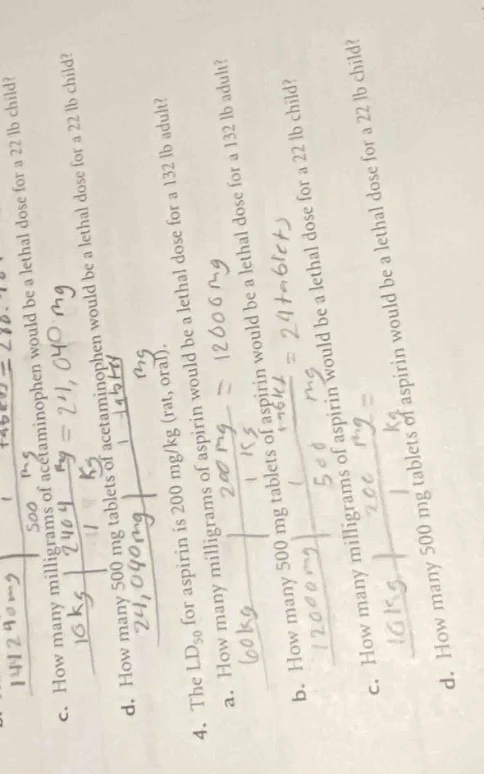 1 tablet = 288.48
141240mg 500 mg
c. How many milligrams of acetaminophen would be a lethal dose for a 22 lb child?
10kg 2404 mg = 24,040 mg
1 kg
d. How many 500 mg tablets of acetaminophen would be a lethal dose for a 22 lb child?
24,040mg 1 tablet
mg
4. The LD50 for aspirin is 200 mg/kg (rat, oral).
a. How many milligrams of aspirin would be a lethal dose for a 132 lb adult?
60kg 200 mg = 12000mg
1 kg
b. How many 500 mg tablets of aspirin would be a lethal dose for a 132 lb adult?
12000mg 1 tablet = 24 tablets
500 mg
c. How many milligrams of aspirin would be a lethal dose for a 22 lb child?
10kg 200 mg =
1 kg
d. How many 500 mg tablets of aspirin would be a lethal dose for a 22 lb child?